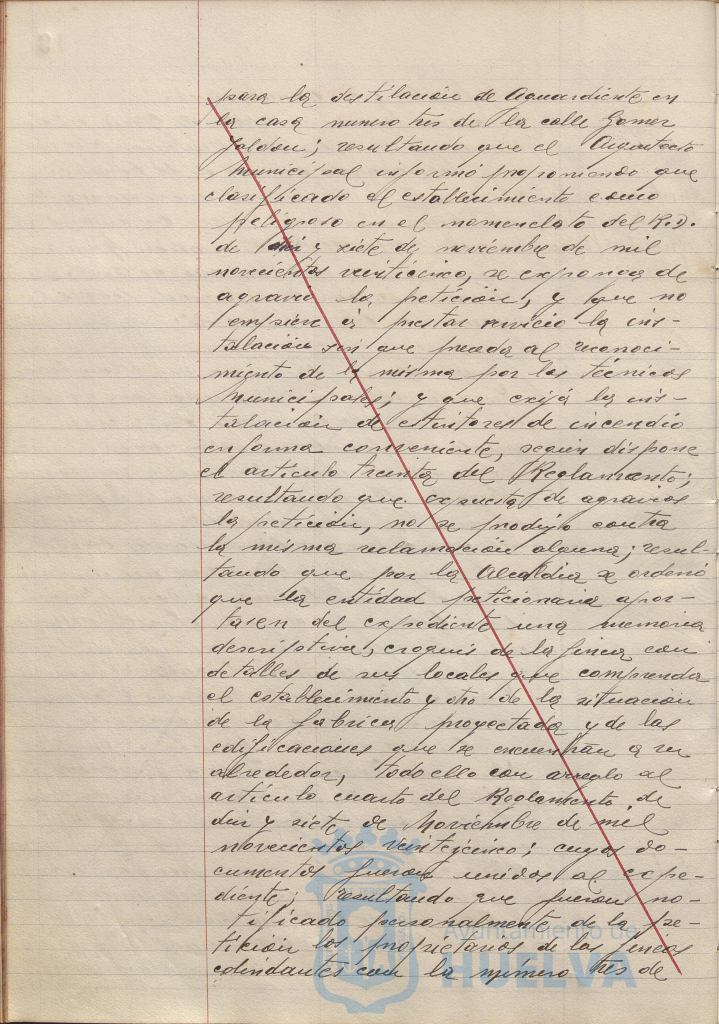 para la destilación de Aguardiente en
la casa numero tres de la calle Gomez
Jaldon; resultando que el Arquitecto
Municipal informó proponiendo que
clasificado el establecimiento como
peligroso en el nomenclato del R.D.
de diez y siete de noviembre de mil
novecientos veinticinco, se exponga de
agravio la petición, y que no
empiece á prestar servicio la ins-
talación sin que preceda al reconoci-
miento de la misma por los técnicos
Municipales; y que exija la ins-
talación de extintores de incendio
en forma conveniente, según dispone
el artículo treinta del Reglamento;
resultando que expuesta de agravios
la petición, no se produjo contra
la misma reclamación alguna; resul-
tando que por la Alcaldia se ordenó
que la entidad peticionaria apor-
tasen del expediente una memoria
descriptiva, croquis de la finca con
detalles de sus locales que comprenda
el establecimiento y otro de la situación
de la fabrica proyectada y de las
edificaciones que se encuentran a su
alrededor, todo ello con arreglo al
artículo cuarto del Reglamento de
diez y siete de Noviembre de mil
novecientos veinticinco; cuyos do-
cumentos fueron unidos al expe-
diente; resultando que fueron no-
tificado personalmente de la pe-
tición los propietarios de las fincas
colindantes con la número tres de
Ayuntamiento de
HUELVA